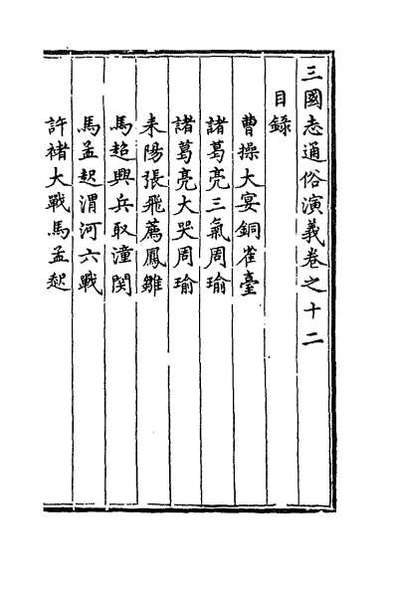 三國志通俗演義卷之十二
目錄
曹操大宴銅雀臺
諸葛亮三氣周瑜
諸葛亮大哭周瑜
耒陽張飛薦鳳雛
馬超興兵取潼関
馬孟起渭河六戰
許禇大戰馬孟起